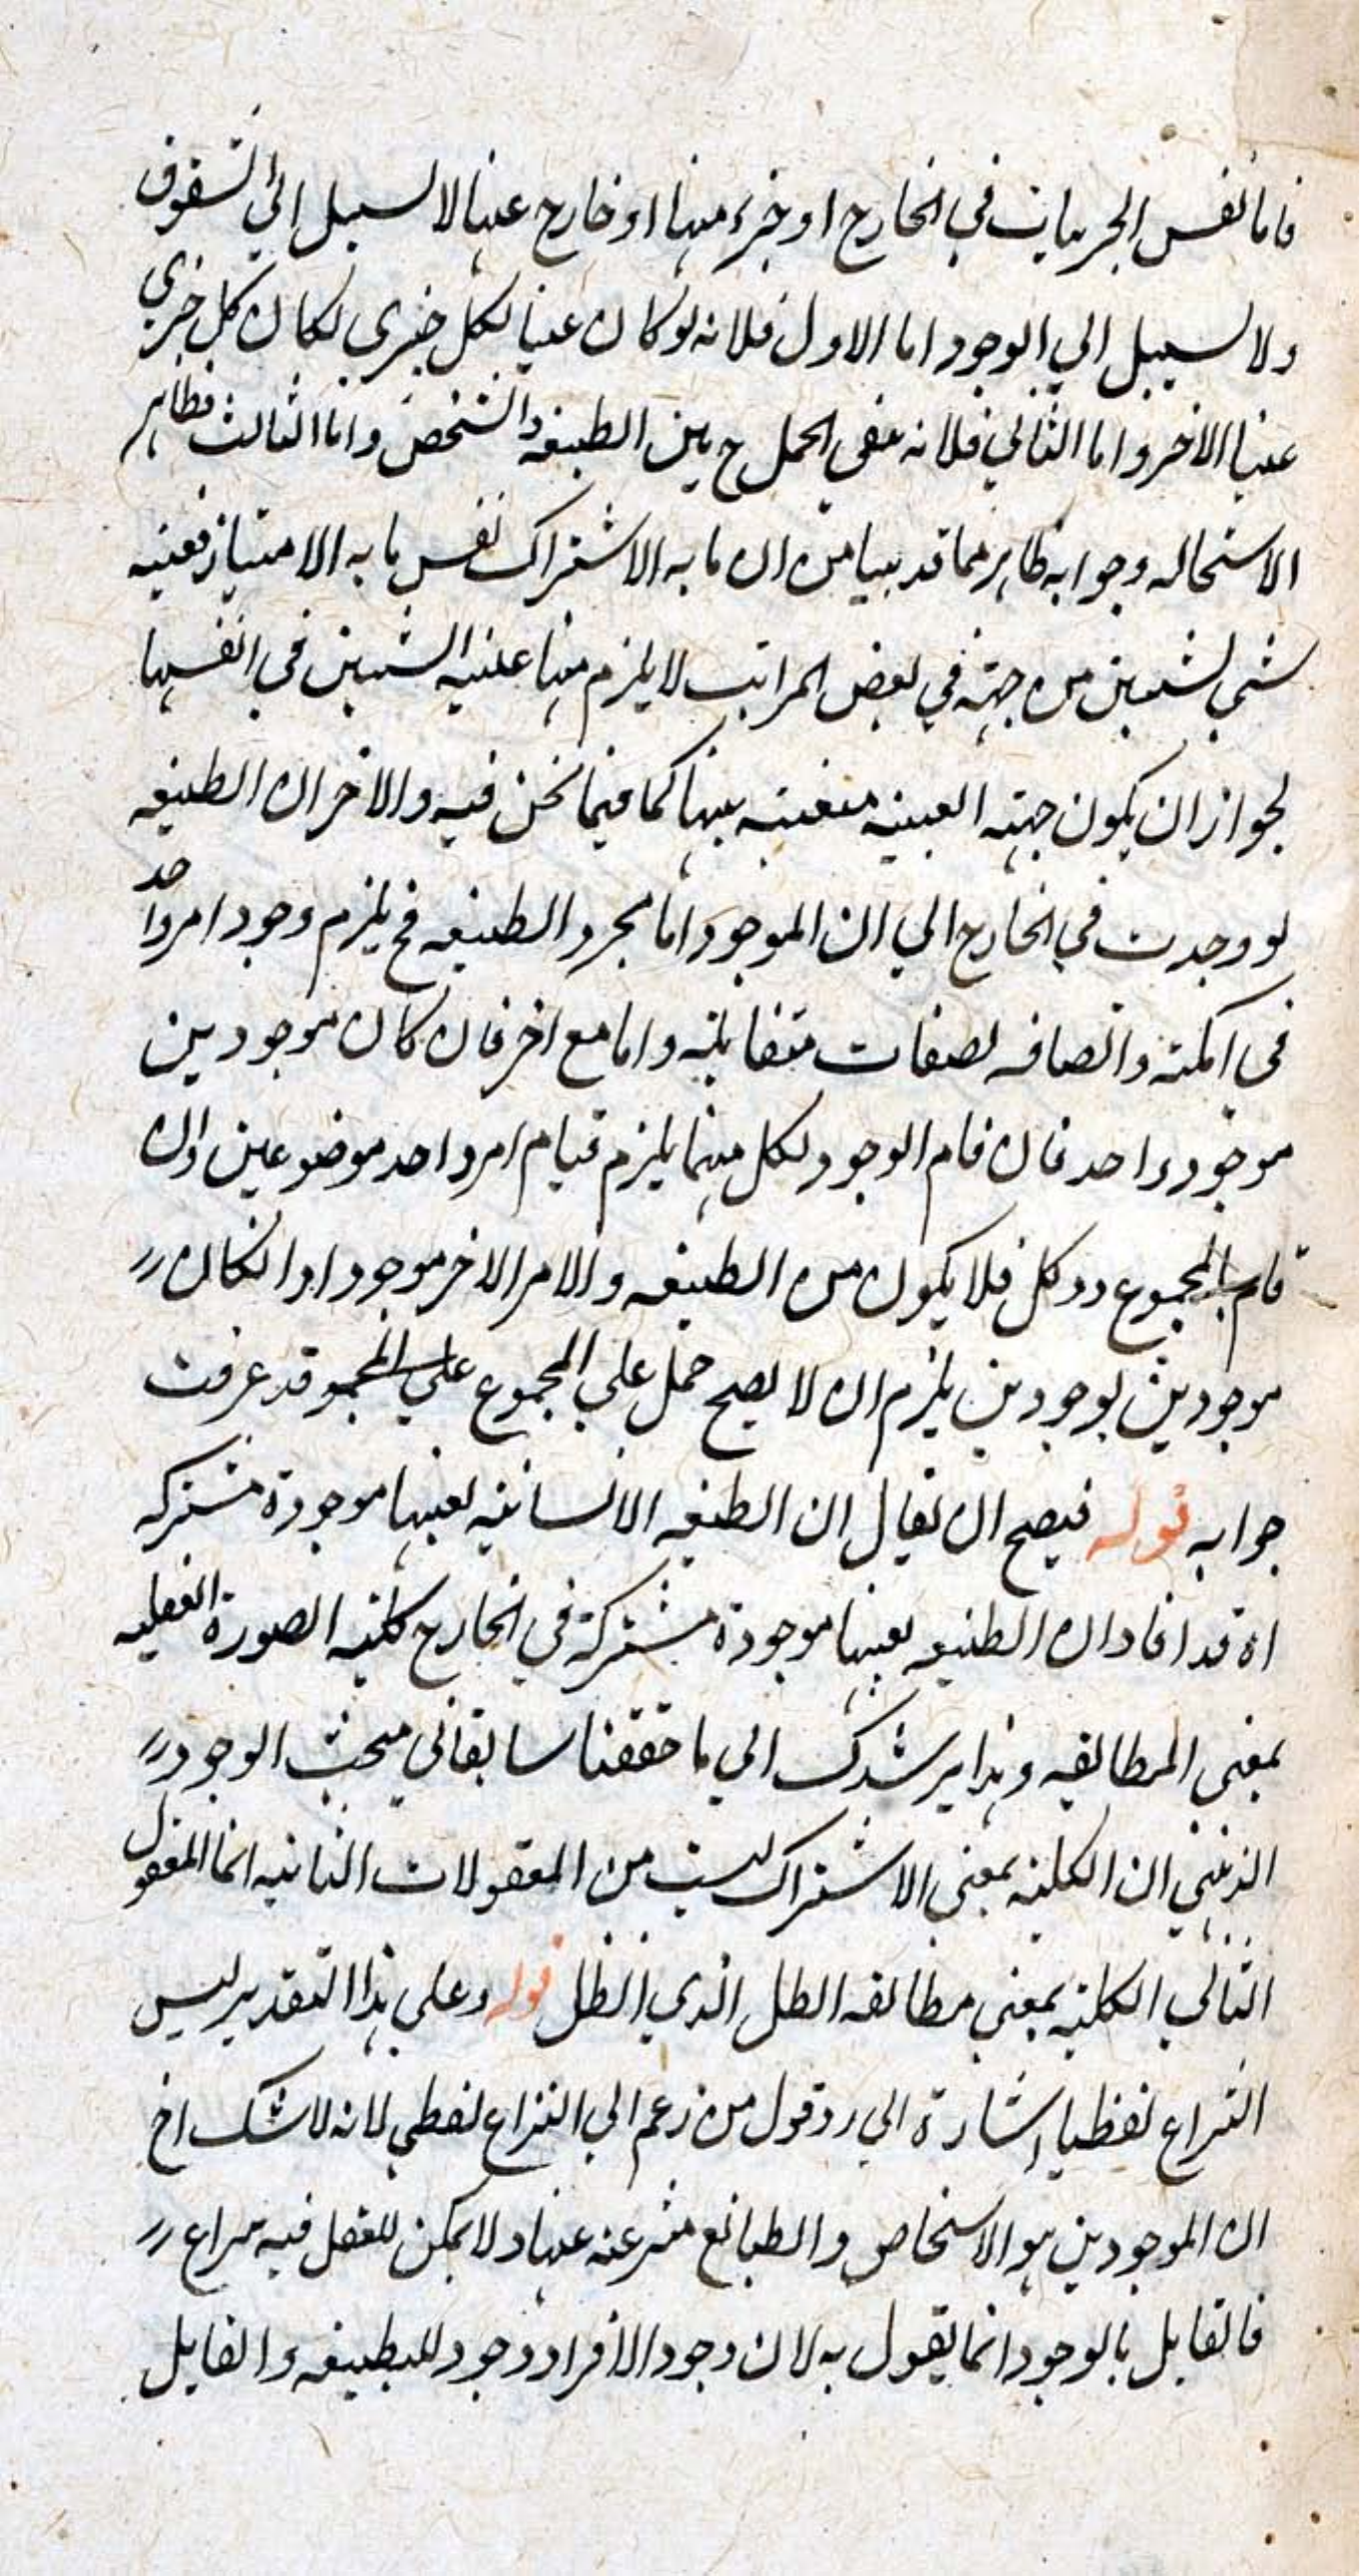 فاما نفس الجزئيات في الخارج او جزء منها او خارج عنها لا سبيل الي الشقوق
ولا سبيل الي الوجود اما الاول فلانه لو كان عينا لكل جزي لكان كل جزي
عينا الاخر واما الثاني فلانه ينفي الحمل ح بين الطبيعه والشخص واما الثالث فظاهر
الاستحاله وجوابه ظاهر مما قد بينا من ان ما به الاشتراك نفس ما به الامتياز فعينيه
شي لشيين من جهة في بعض المراتب لا يلزم منها عينيه الشيين في انفسها
لجواز ان يكون جهته العينيه منفيه بينها كما فيما نحن فيه والاخر ان الطبيعه
لو وجدت في الخارج الي ان الموجود اما مجرد الطبيعه فح يلزم وجود امر واحد
في امكنة واتصافه بصفات متقابله واما مع اخر فان كان موجودين
موجود واحد فان قام الوجود لكل منهما يلزم قيام امر واحد موضوعين وان
قام بالمجموع دو كل فلا يكون من الطبيعه والامر الاخر موجودا وا لكان
موجودين بوجودين يلزم ان لا يصح حمل علي المجموع علي المجمو قد عرفت
جوابه قوله فيصح ان يقال ان الطبعيه الانسانيه بعينها موجودة مشتركه
اه قد افاد ان الطبيعه بعينها موجودة مشتركة في الخارج كلية الصورة العقليه
بمعني المطابقيه وهذا يرشدك الي ما حققنا سابقا في مبحث الوجود
الذهني ان الكليه بمعني الاشتراك ليست من المعقولات الثانيه انما المعقول
الثاني الكليه بمعني مطابقه الظل الذي الظل قوله وعلي هذا التقدير ليس
النزاع لفظيا اشارة الي رد قول من زعم الي النزاع لفظي لانه لا شك اخ
ان الموجودين هو الاشخاص والطبائع منتزعه عنها ولا يمكن للعقل فيه نزاع
فالقايل بالوجود انما يقول به لان وجود الافراد وجود للطبيعه والقايل